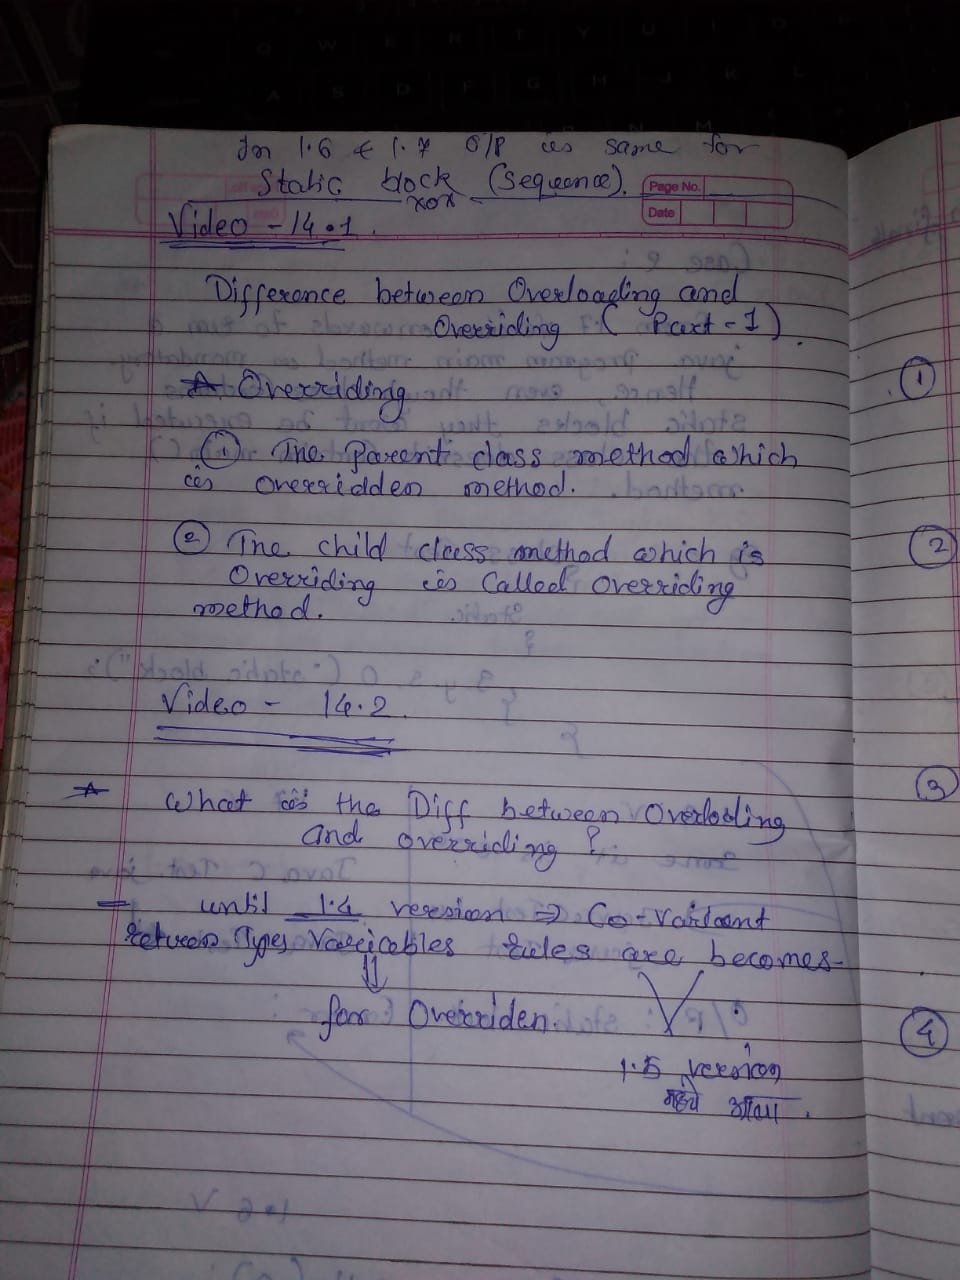 In 1.6 & 1.7 O/P is same for
Static block (Sequence).
xox
Page No.
Date
Video - 14.1.
Difference between Overloading and
Overriding ( Part - 1 )
Overriding
1
① The Parent class method which
is overridden method.
② The child class method which is
2
Overriding is Called Overriding
method.
Video - 14.2.
3
What is the Diff between Overloding
and overriding ?
until 1.4 version ⇒ Co-Variant
return Types Varicables rules are becomes-
⇓
for Overriden.
4
1.5 version
मध्ये आला .